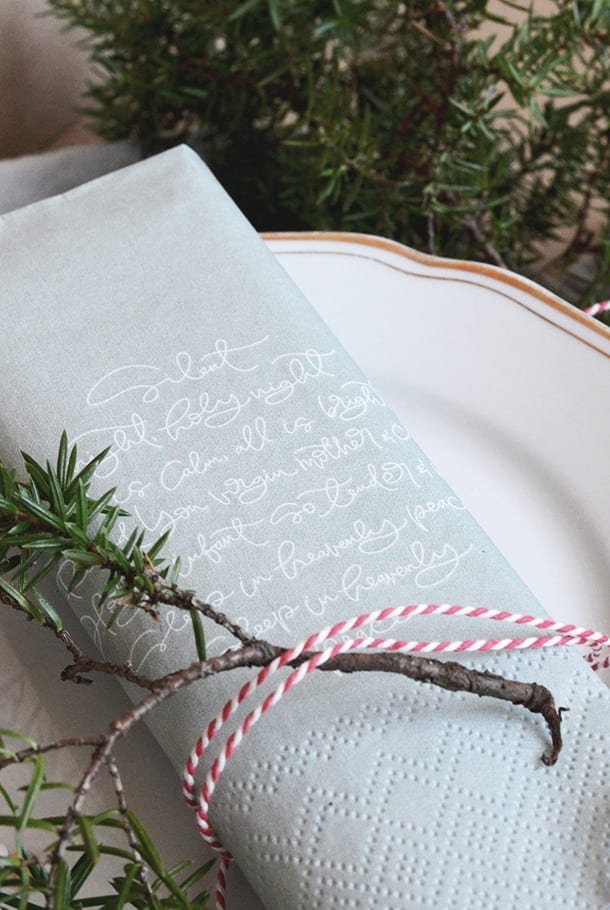 Silent
night, holy night
is calm, all is bright
you virgin mother &
infant so tender &
Sleep in heavenly peac
Sleep in heavenly